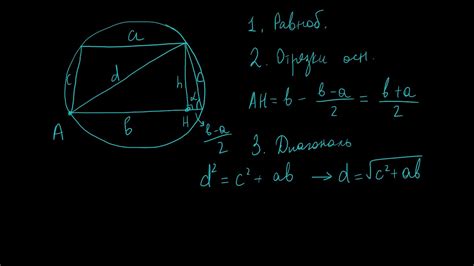 a
c d h c
α
A b H
b-a/2
1. Равноб.
2. Отрезки осн.
AH = b - b-a/2 = b+a/2
3. Диагональ
d² = c² + ab → d = √c² + ab